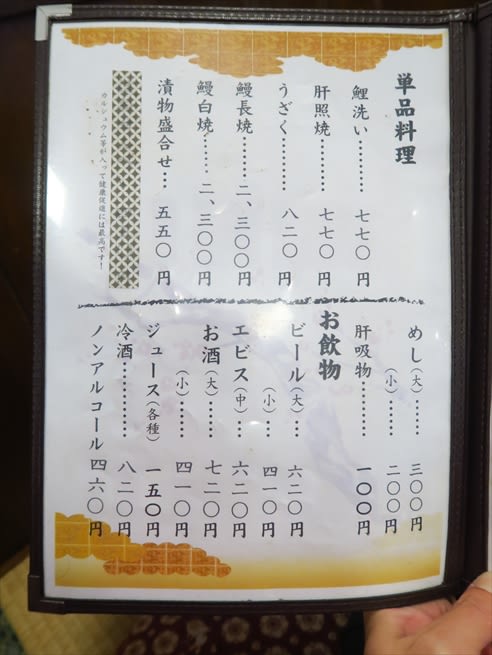 単品料理
鯉洗い………… 七七〇円
肝照焼………… 七七〇円
うざく………… 八二〇円
鰻長焼…… 二、三〇〇円
鰻白焼…… 二、三〇〇円
漬物盛合せ… 五五〇円
カルシュウム等が入って健康促進には最高です!
めし(大)…… 三〇〇円
(小)…… 二〇〇円
肝吸物………… 一〇〇円
お飲物
ビール(大)… 六二〇円
(小)… 四一〇円
エビス(中)… 六二〇円
お酒(大)…… 七二〇円
(小)…… 四一〇円
ジュース(各種) 一五〇円
冷酒………… 八二〇円
ノンアルコール 四六〇円